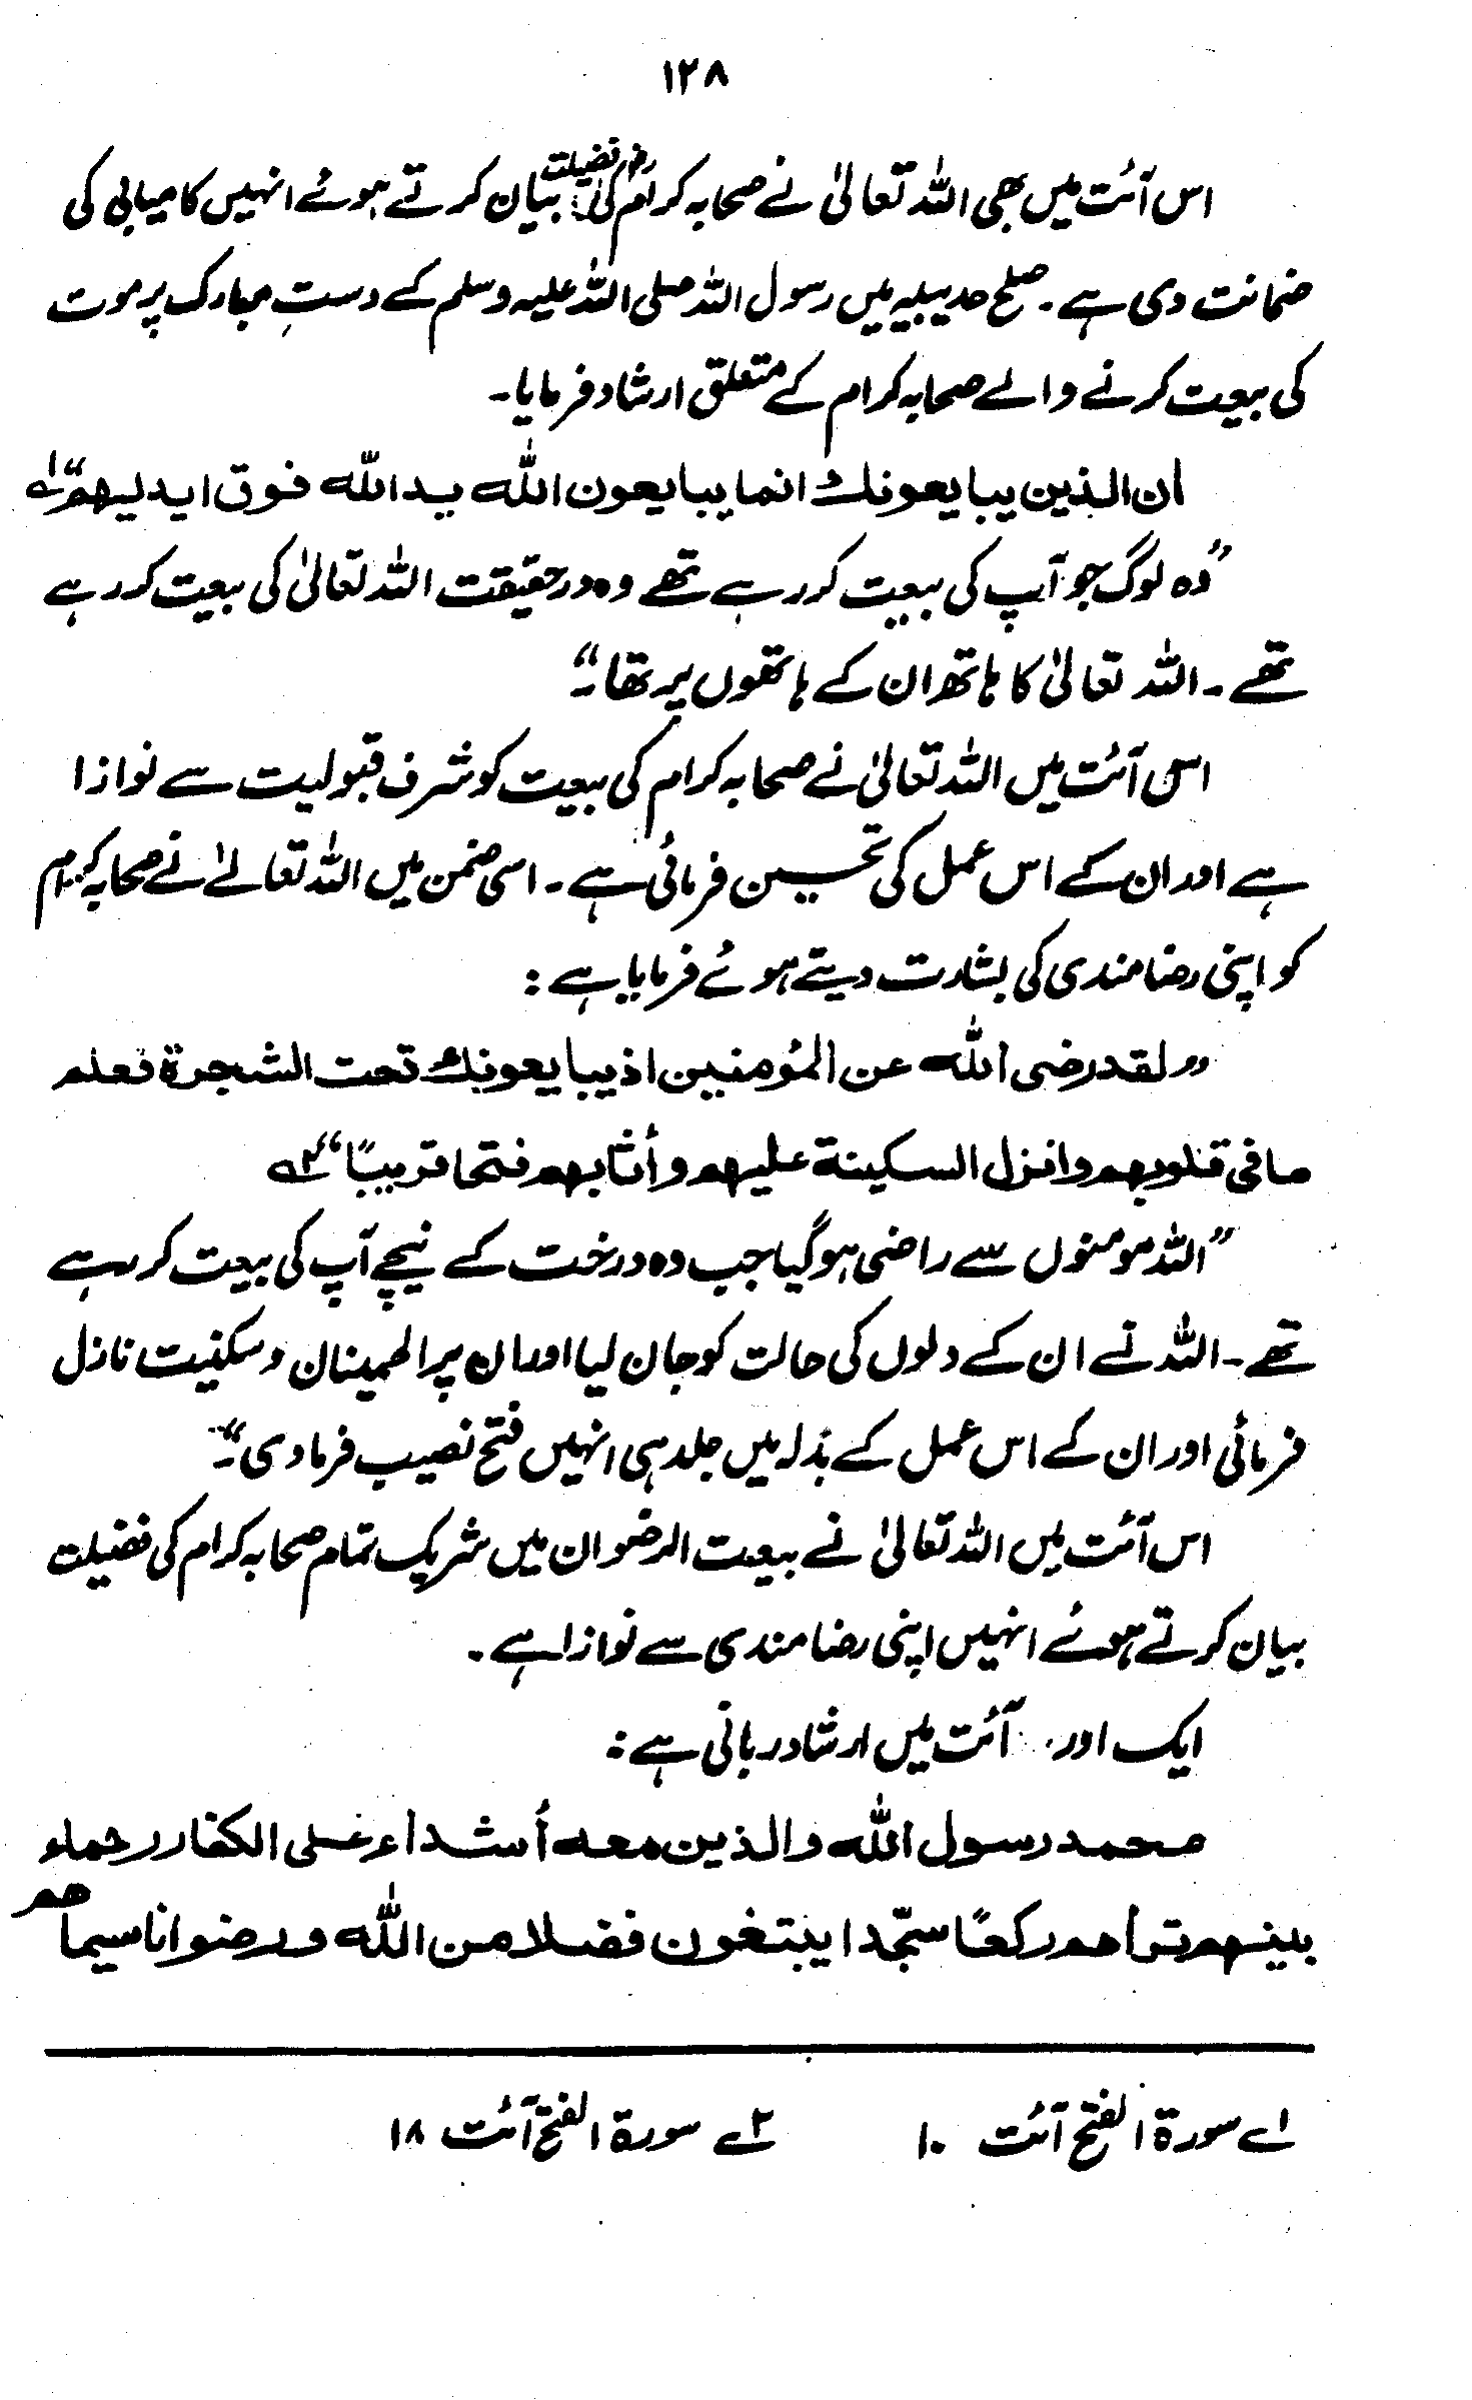 ۱۲۸
اس آئت میں بھی اللہ تعالیٰ نے صحابہ کرامؓ کی فضیلت بیان کرتے ہوئے انہیں کامیابی کی
ضمانت دی ہے۔ صلح حدیبیہ میں رسول اللہ صلی اللہ علیہ وسلم کے دستِ مبارک پر موت
کی بیعت کرنے والے صحابہ کرام کے متعلق ارشاد فرمایا۔
ان الذین یبایعونك انما یبایعون اللہ ید اللہ فوق ایدیہم“ ۱ے
”وہ لوگ جو آپ کی بیعت کر رہے تھے وہ درحقیقت اللہ تعالیٰ کی بیعت کر رہے
تھے۔ اللہ تعالیٰ کا ہاتھ ان کے ہاتھوں پر تھا۔“
اس آئت میں اللہ تعالیٰ نے صحابہ کرام کی بیعت کو شرف قبولیت سے نوازا
ہے اور ان کے اس عمل کی تحسین فرمائی ہے۔ اسی ضمن میں اللہ تعالےٰ نے صحابہ کرام
کو اپنی رضامندی کی بشارت دیتے ہوئے فرمایا ہے :
”لقد رضی اللہ عن المؤمنین اذ یبایعونك تحت الشجرة فعلم
ما فی قلوبہم وانزل السکینة علیہم وأثابہم فتحا قریبًا“ ۲ے
”اللہ مومنوں سے راضی ہوگیا جب وہ درخت کے نیچے آپ کی بیعت کر رہے
تھے۔ اللہ نے ان کے دلوں کی حالت کو جان لیا اور ان پر اطمینان و سکنیت نازل
فرمائی اور ان کے اس عمل کے بدلہ میں جلد ہی انہیں فتح نصیب فرما دی۔“
اس آئت میں اللہ تعالیٰ نے بیعت الرضوان میں شریک تمام صحابہ کرام کی فضیلت
بیان کرتے ہوئے انہیں اپنی رضامندی سے نوازا ہے۔
ایک اور آئت میں ارشاد ربانی ہے :
محمد رسول اللہ والذین معہ أشداء علی الکفار رحماء
بینہم تراھم رکعًا سجّدا یبتغون فضلا من اللہ ورضوانا سیماھم
۱ے سورة الفتح آئت ۱۰
۲ے سورة الفتح آئت ۱۸